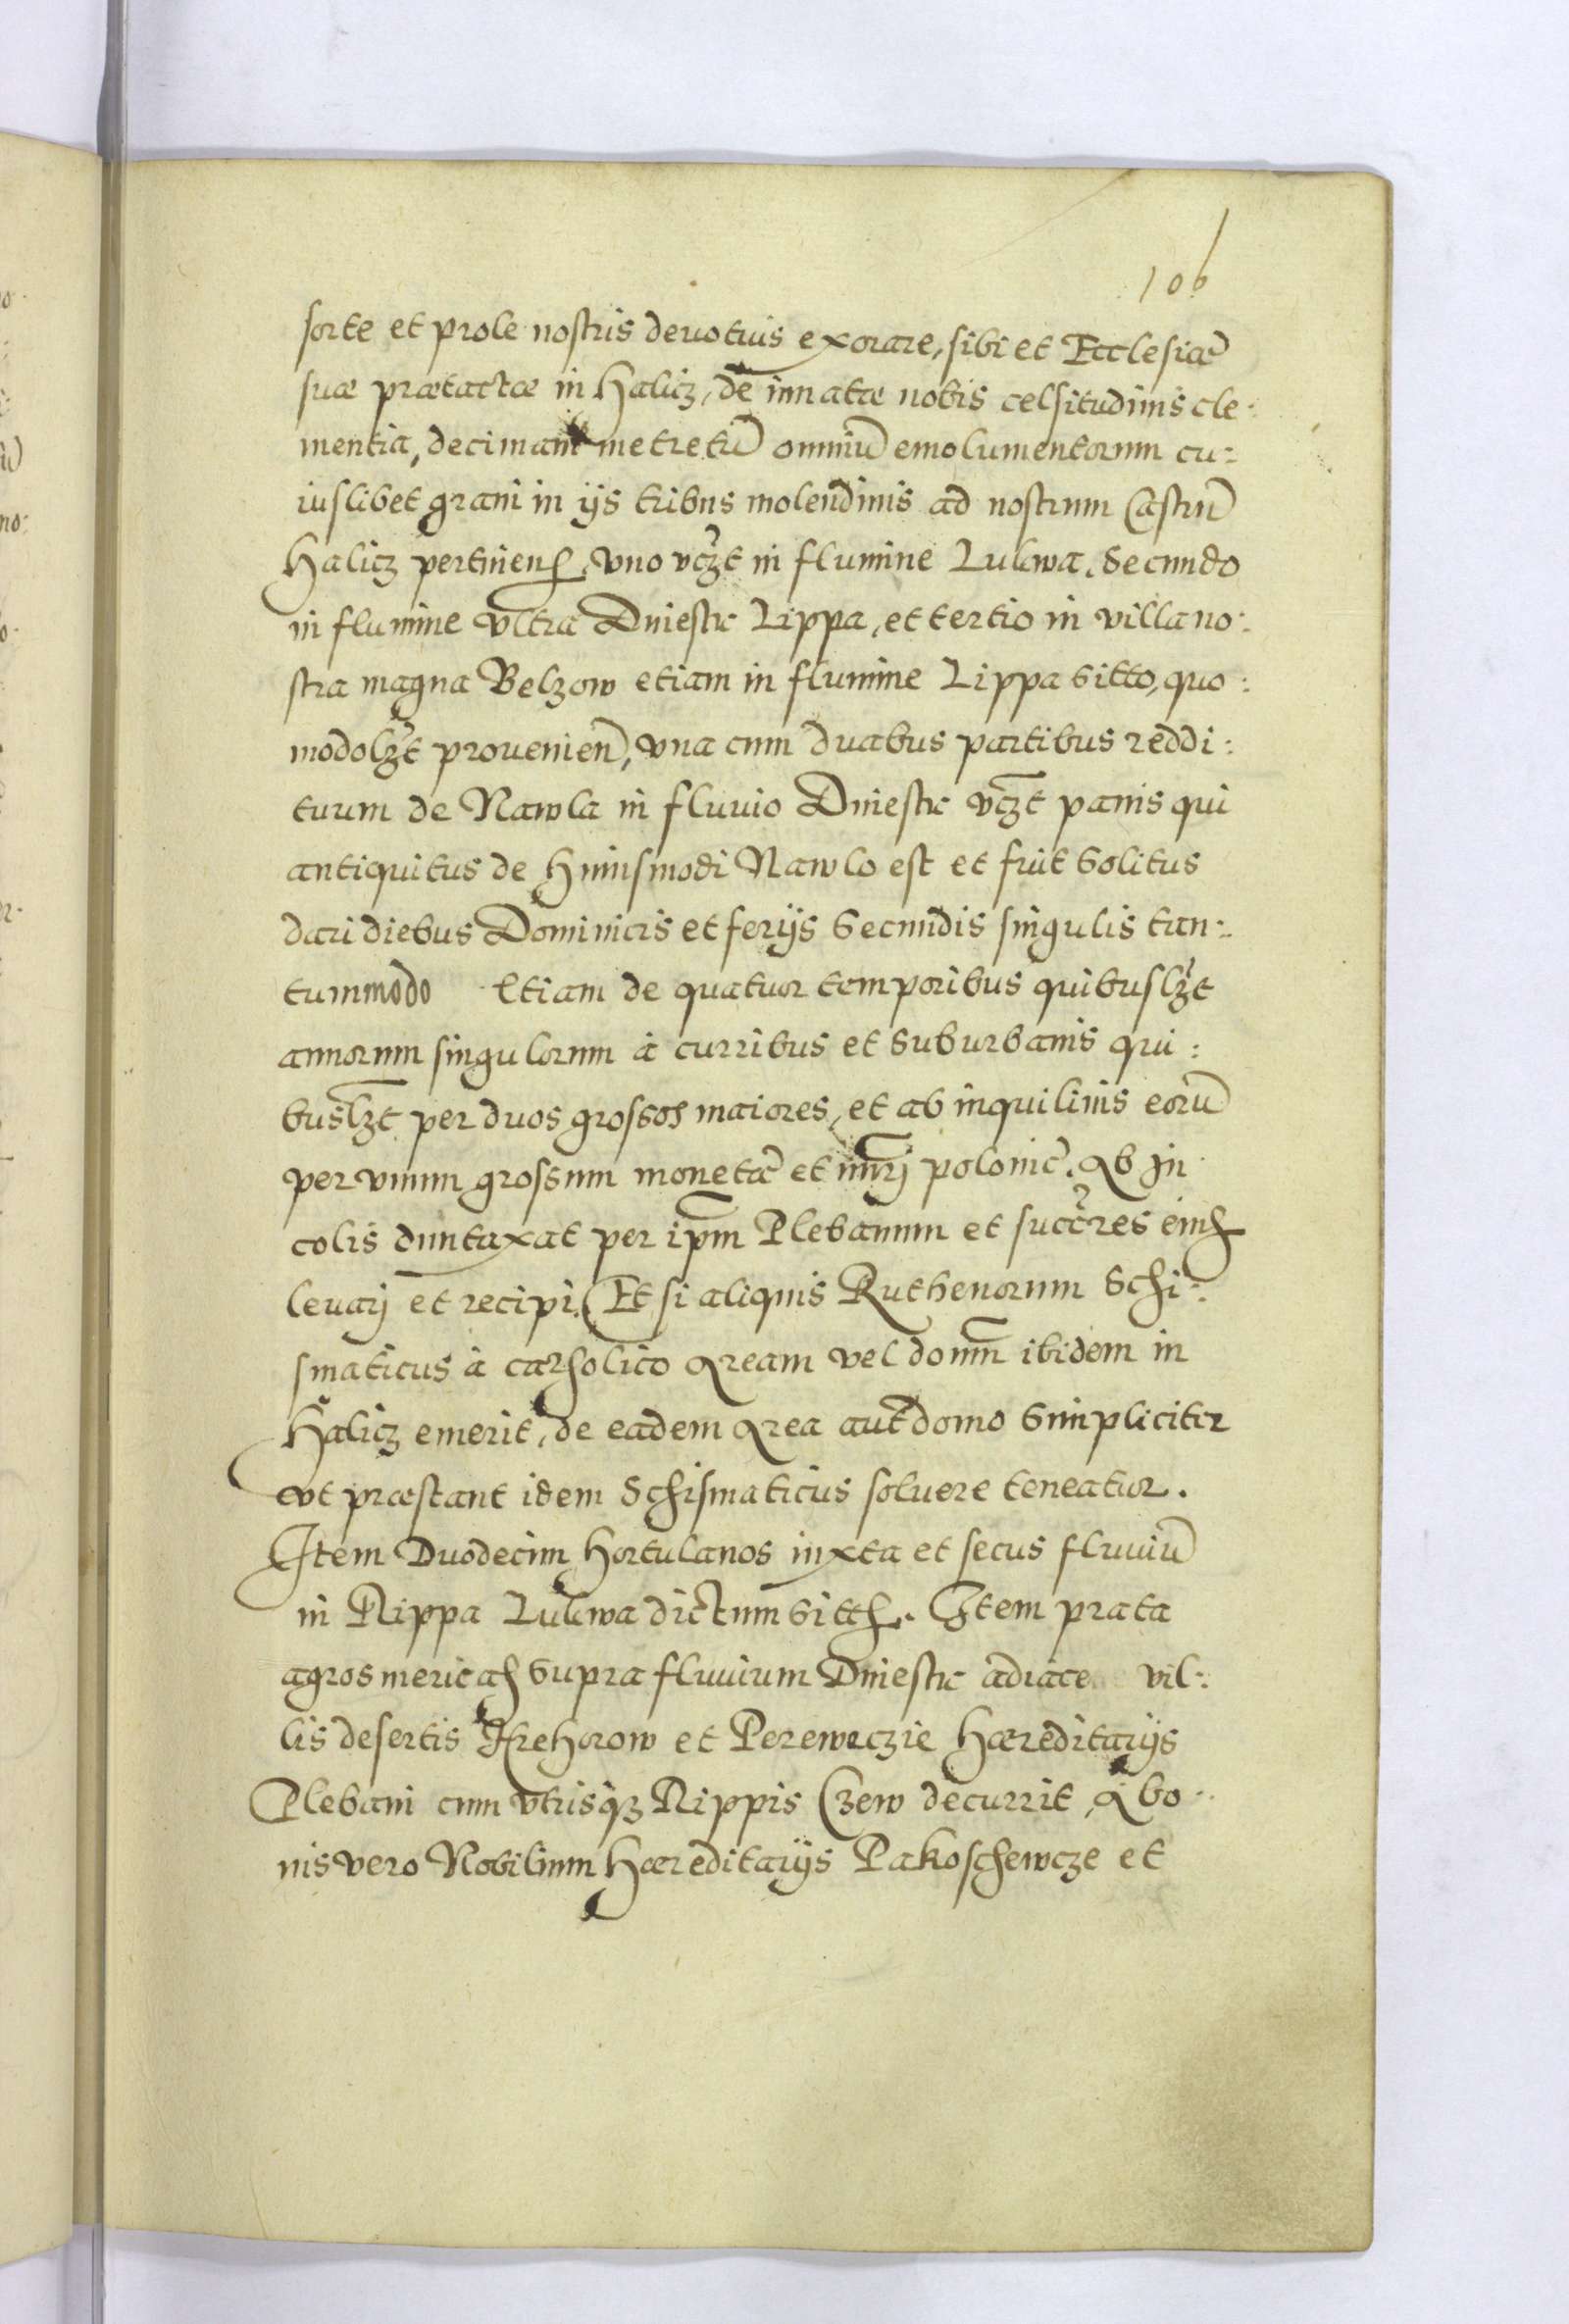 106
sorte et prole nostris deuotius exorare, sibi et Ecclesiæ
suæ prætactæ in Halicz, de innatæ nobis celsitudinis cle:
mentia, decimam metretū omniū emolumentorum cu:
iuslibet grani in ijs tribus molendinis ad nostrum Castrū
Halicz pertinen, vno vczt in flumine Lukwa, Secundo
in flumine vltra Dniestr Lippa, et tertio in villa no:
stra magna Belzow etiam in flumine Lippa sitto, quo:
modolzt prouenien, vna cum duabus partibus reddi:
tuum de Nawla in fluuio Dniestr vczt panis qui
antiquitus de Huiusmodi Nawlo est et fuit Solitus
dari diebus Dominicis et ferijs Secundis singulis tan:
tummodo Etiam de quatuor temporibus quibuslzt
annorum singulorum à curribus et Suburbanis qui:
buslzt per duos grossos maiores, et ab inquilinis eorū
per vnum grossum monetæ et nūrj polonic. Ab In
colis duntaxat per ipm Plebanum et succres eius
leuarj et recipi. Et si aliquis Ruthenorum Schi:
smaticus à catholico Aream vel domum ibidem in
Halicz emerit, de eadem Area aut domo Simpliciter
vt præstant idem Schismaticus soluere teneatur.
Item Duodecim Hortulanos iuxta et secus fluuiū
in Rippa Lukwa dictum sitt. Item prata
agros mericas Supra fluuium Dniestr adiace vil:
lis desertis Hrehorow et Perewczie Hæreditarijs
Plebani cum vtrisqz Rippis Czew decurrit, A bo:
nis vero Nobilium Hæreditarijs Pakoschewcze et